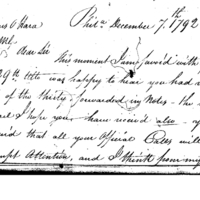 Phila. December 7.th 1792
s O'Hara
Dear Sir
This moment I am favor'd with
29th ulto was happy to hear you had a
of the thirty forwarded in Notes - the
I hope you have receiv'd also -
that all your Official
Attention, and I think from my